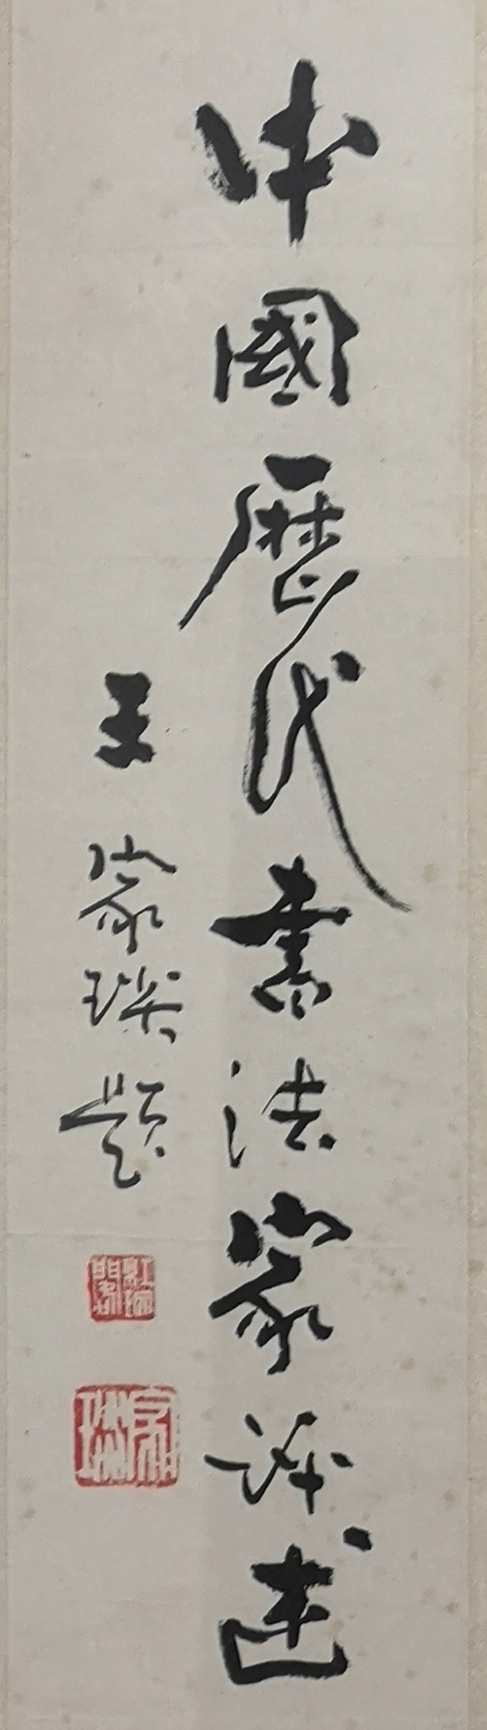 中國歷代書法家評述
王家琰題